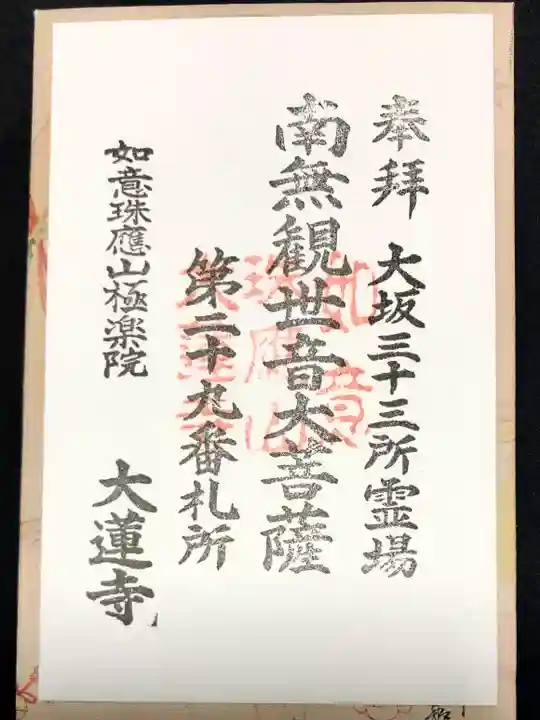 奉拝 大坂三十三所霊場
南無観世音大菩薩
第二十九番札所
如意珠應山極楽院
大蓮寺
如意
珠應山
大蓮寺